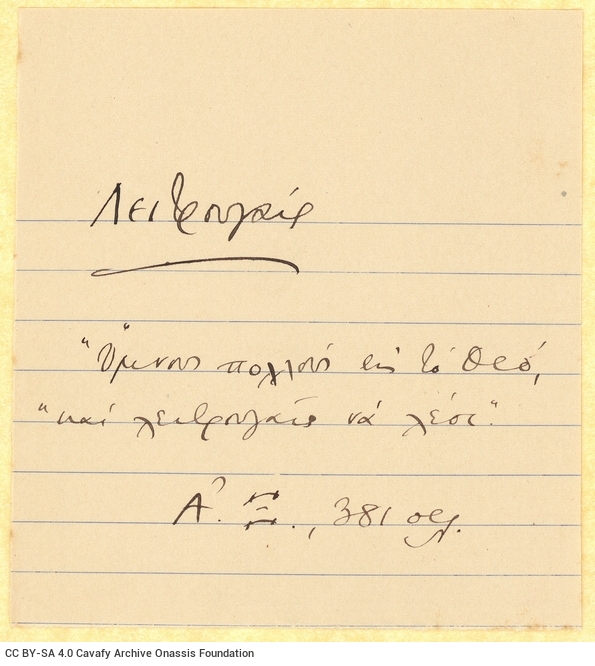 Λειτρουγαίς
"Ύμνους πολλούς εις το Θεό,
"και λειτρουγαίς νά λέσι".
Α'. Ξ., 381 σελ.
CC BY-SA 4.0 Cavafy Archive Onassis Foundation